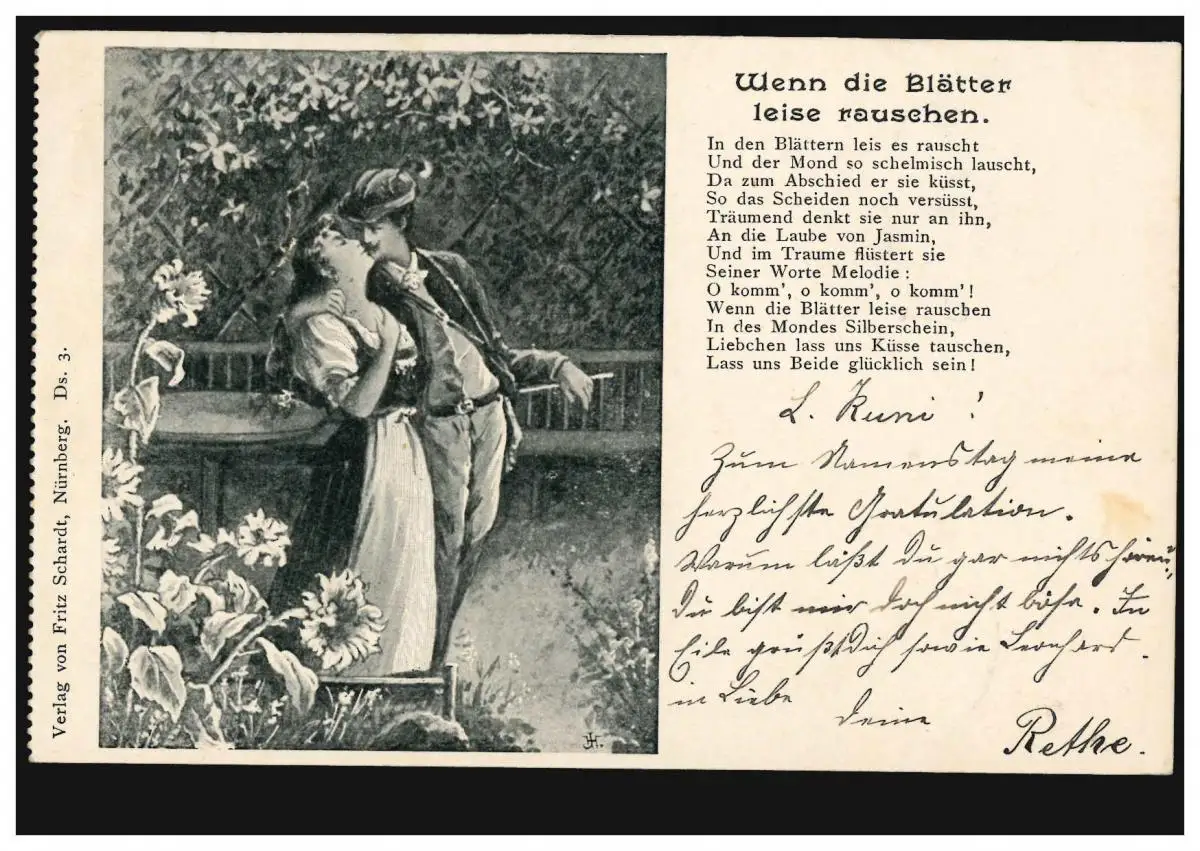 Wenn die Blätter
leise rauschen.
In den Blättern leis es rauscht
Und der Mond so schelmisch lauscht,
Da zum Abschied er sie küsst,
So das Scheiden noch versüsst,
Träumend denkt sie nur an ihn,
An die Laube von Jasmin,
Und im Traume flüstert sie
Seiner Worte Melodie :
O komm', o komm', o komm'!
Wenn die Blätter leise rauschen
In des Mondes Silberschein,
Liebchen lass uns Küsse tauschen,
Lass uns Beide glücklich sein!
L. Kuni !
Zum Namenstag meine
herzlichste Gratulation.
Warum läßt Du gar nichts hören,
Du bist mir doch nicht böse. In
Eile grüßt Dich sowie Leonhard
in Liebe
Deine
Rethe.
Verlag von Fritz Schardt, Nürnberg. Ds. 3.
JH.